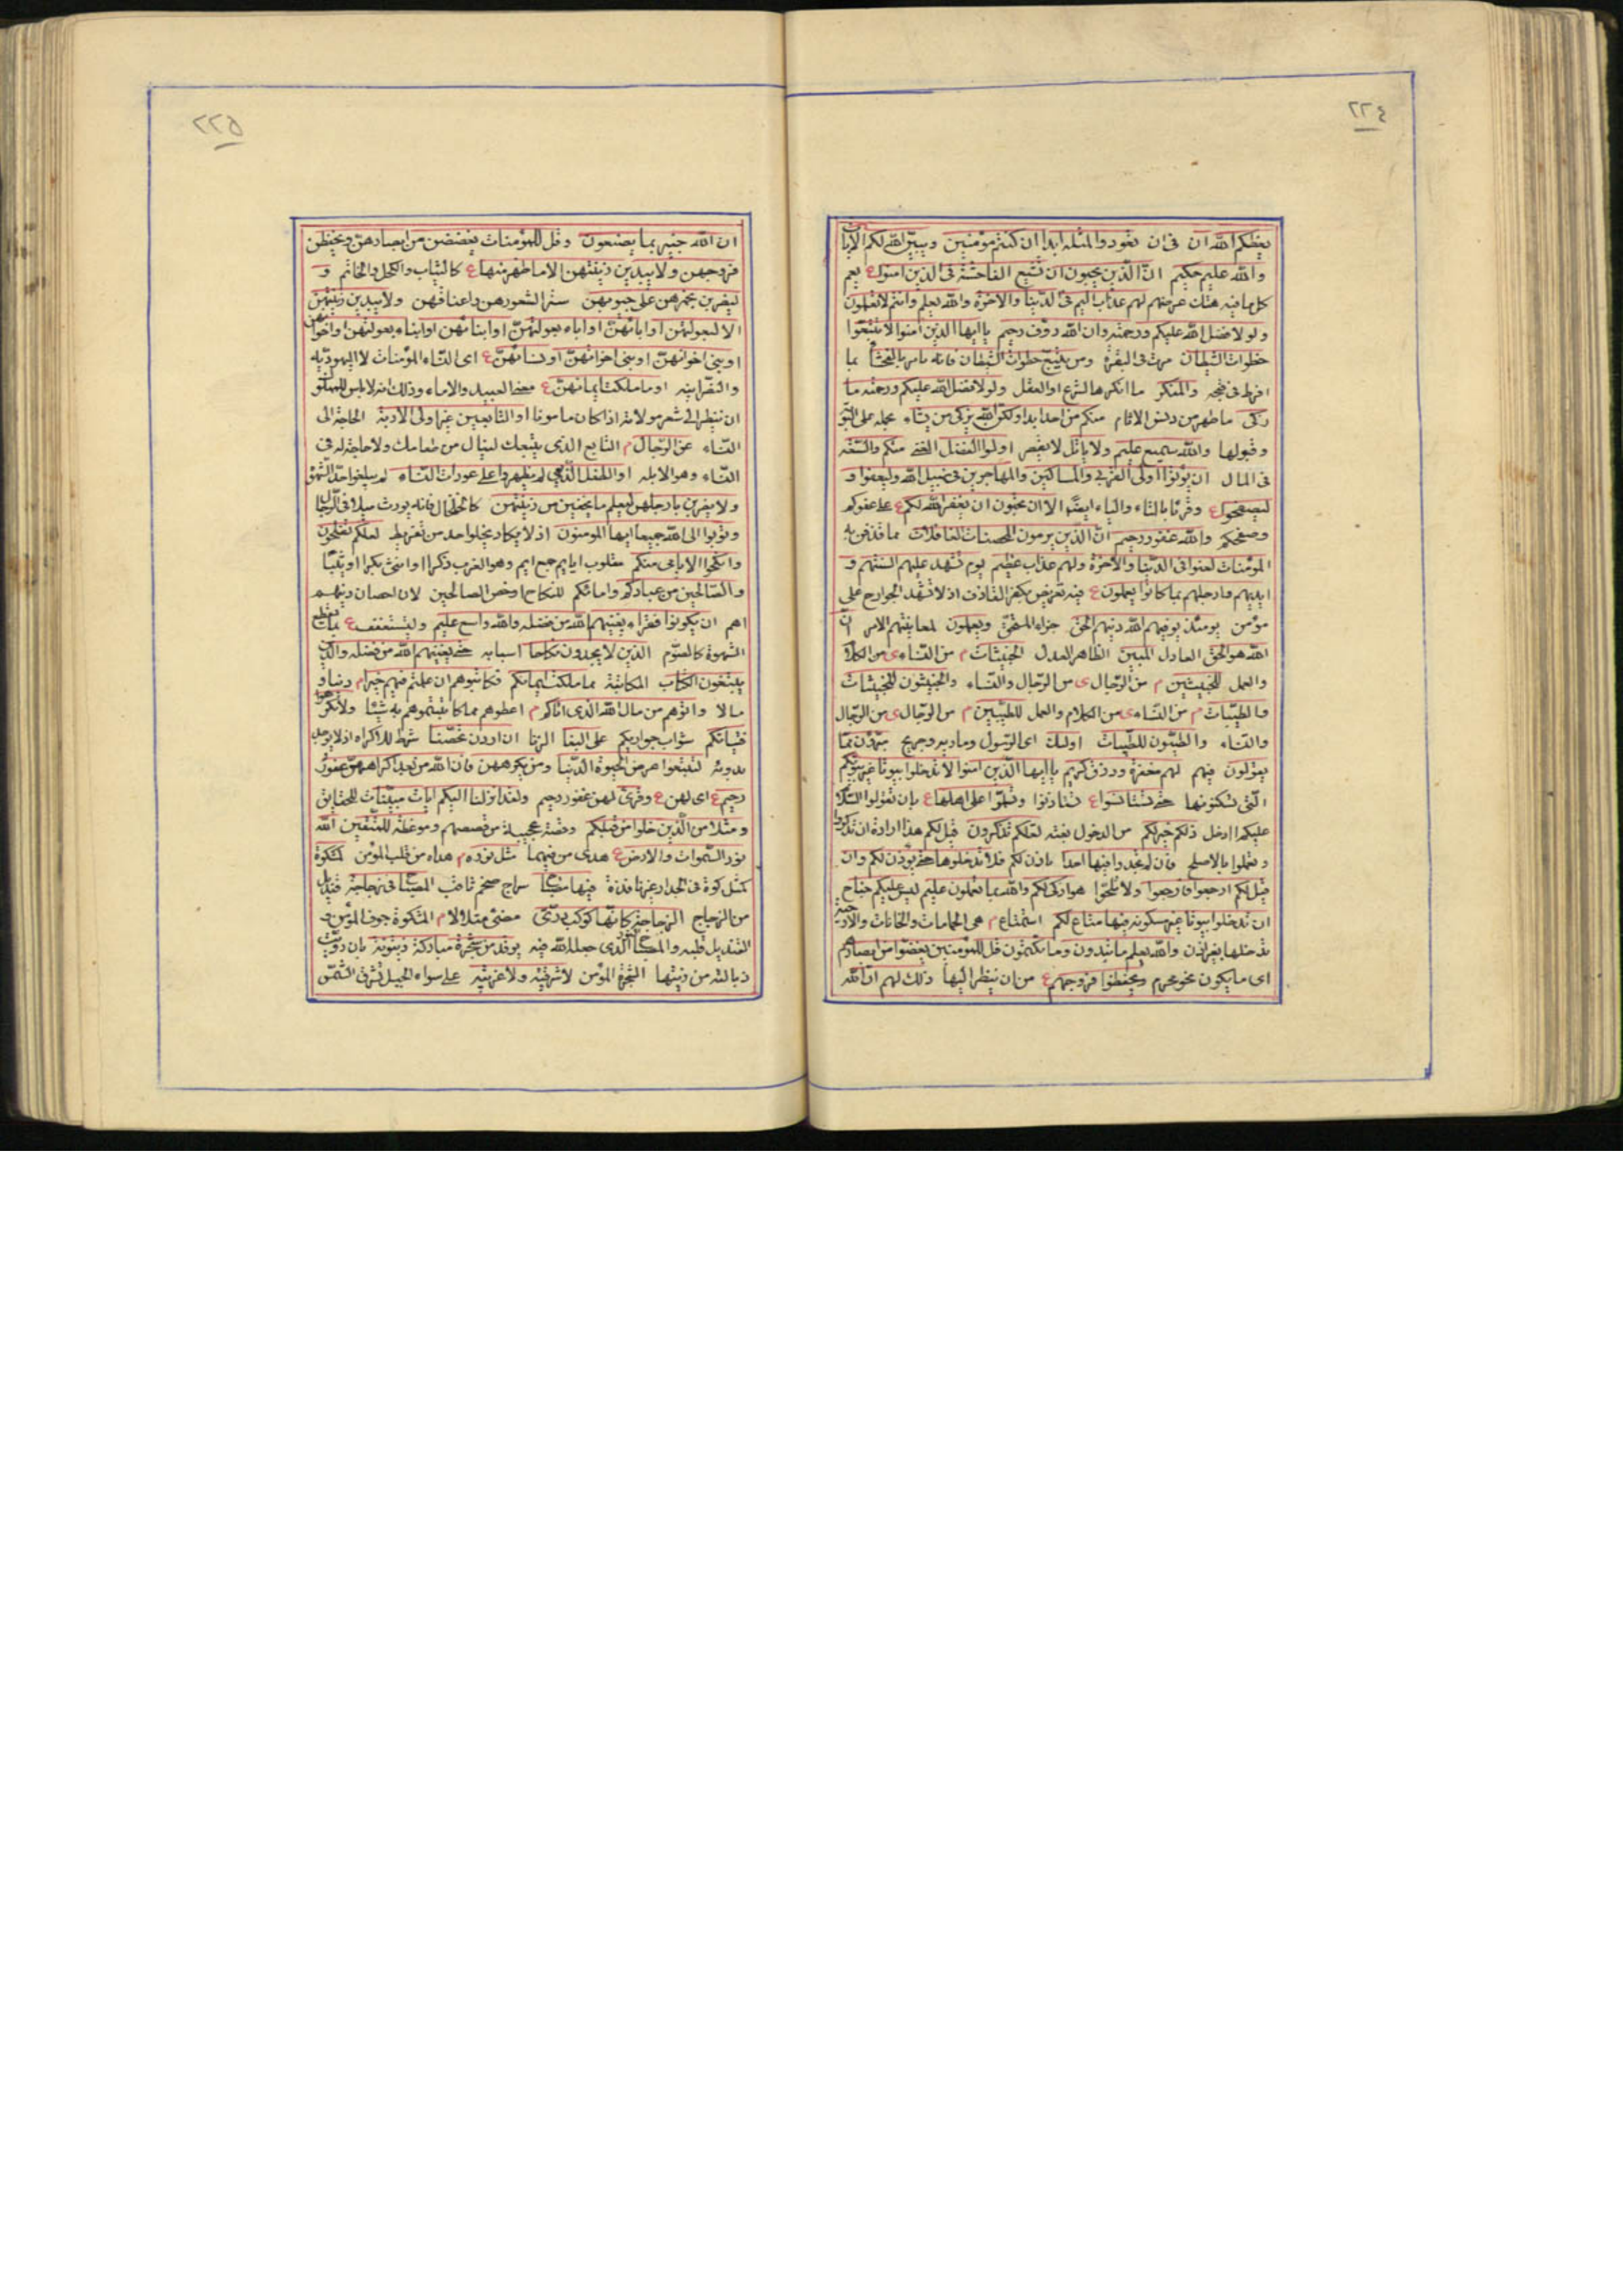 ٢٢٤
يعظكم الله ان فى ان تعودوا لمثله ابدا ان كنتم مؤمنين ويبين الله لكم الايات
والله عليم حكيم ان الذين يحبون ان تشيع الفاحشة فى الذين امنوا ع يعم
كل ما فيه هتك عرضهم لهم عذاب اليم فى الدنيا والاخرة والله يعلم وانتم لا تعلمون
ولولا فضل الله عليكم ورحمته وان الله رؤف رحيم يا ايها الذين امنوا لا تتبعوا
خطوات الشيطان مرت فى البقرة ومن يتبع خطوات الشيطان فانه يامر بالفحشا بما
افرط فى قبحه والمنكر ما انكره الشرع او العقل ولولا فضل الله عليكم ورحمته ما
زكى ما طهر من دنس الاثام منكم من احد ابدا ولكن الله يزكى من يشاء بحمله على التوبة
وقبولها والله سميع عليم ولا ياتل لا يقصر اولوا الفضل الغنى منكم والسعة
فى المال ان يؤتوا اولى القربى والمساكين والمهاجرين فى سبيل الله وليعفوا و
ليصفحوا ع وقرئا بالتاء والياء ايضا الا ان تحبون ان يغفر الله لكم ع على عفوكم
وصفحكم والله غفور رحيم ان الذين يرمون المحصنات الغافلات مما قذفن به
المؤمنات لعنوا فى الدنيا والاخرة ولهم عذاب عظيم يوم تشهد عليهم السنتهم و
ايديهم وارجلهم بما كانوا يعملون ع فيه تعريض بكفر القاذف اذ لا تشهد الجوارح على
مؤمن يومئذ يوفيهم الله دينهم الحق جزاء المستحق ويعلمون لمعاينتهم الامر ان
الله هو الحق العادل المبين الظاهر العدل الخبيثات م من النساء ى من الكلام
والعمل للخبيثين م من الرجال ى من الرجال والنساء والخبيثون للخبيثات
والطيبات م من النساء ى من الكلام والعمل للطيبين م من الرجال ى من الرجال
والنساء والطيبون للطيبات اولئك اى الرسول وماريه وجريح مبرؤن مما
يقولون فيهم لهم مغفرة ورزق كريم يا ايها الذين امنوا لا تدخلوا بيوتا غير بيوتكم
التى تسكنونها حتى تستانسوا ع تستاذنوا وتسلموا على اهلها ع بان تقولوا السلام
عليكم اادخل ذلكم خير لكم من الدخول بغتة لعلكم تذكرون قيل لكم هذا ارادة ان تذكروا
وتعملوا بالاصلح فان لم تجدوا فيها احدا ياذن لكم فلا تدخلوها حتى يؤذن لكم وان
قيل لكم ارجعوا فارجعوا ولا تلحوا هو ازكى لكم والله بما تعملون عليم ليس عليكم جناح
ان تدخلوا بيوتا غير مسكونة فيها متاع لكم استمتاع م هى الحمامات والخانات والارحية
تدخلها بغير اذن والله يعلم ما تبدون وما تكتمون قل للمؤمنين يغضوا من ابصارهم
اى ما يكون نحو محرم ويحفظوا فروجهم ع من ان ينظر اليها ذلك لهم ان الله
٢٢٥
ان الله خبير بما يصنعون وقل للمؤمنات يغضضن من ابصارهن ويحفظن
فروجهن ولا يبدين زينتهن الا ما ظهر منها ع كالثياب والكحل والخاتم و
ليضربن بخمرهن على جيوبهن سترا لشعورهن واعناقهن ولا يبدين زينتهن
الا لبعولتهن او ابائهن او اباء بعولتهن او ابنائهن او ابناء بعولتهن او اخوانهن
او بنى اخوانهن او بنى اخواتهن او نسائهن ع اى النساء المؤمنات لا اليهودية
والنصرانية او ما ملكت ايمانهن ع العبيد والاماء وذلك انه لا باس للمملوك
ان ينظر الى شعر مولاته اذا كان مامونا او التابعين غير اولى الاربة الحاجة الى
النساء من الرجال م التابع الذى يتبعك لينال من طعامك ولا حاجة له فى
النساء وهو الابله او الطفل الذين لم يظهروا على عورات النساء لم يبلغوا حد الشهوة
ولا يضربن بارجلهن ليعلم ما يخفين من زينتهن كالخلخال فانه يورث ميلا فى الرجال
وتوبوا الى الله جميعا ايها المؤمنون اذ لا يكاد يخلو احد من تفريط لعلكم تفلحون
وانكحوا الايامى منكم مقلوب ايايم جمع ايم وهو العزب ذكرا او انثى بكرا او ثيبا
والصالحين من عبادكم وامائكم للنكاح وخص الصالحين لان احصان دينهم
اهم ان يكونوا فقراء يغنيهم الله من فضله والله واسع عليم وليستعفف ع
الشهوة كالصوم الذين لا يجدون نكاحا اسبابه حتى يغنيهم الله من فضله والذين
يبتغون الكتاب المكاتبة مما ملكت ايمانكم فكاتبوهم ان علمتم فيهم خيرا م دينا و
مالا واتوهم من مال الله الذى اتاكم م اعطوهم مما كاتبتموهم به شيئا ولا تكرهوا
فتياتكم شواب جواريكم على البغا الزنا ان اردن تحصنا شرط للاكراه اذ لا يوجد
بدونه لتبتغوا عرض الحيوة الدنيا ومن يكرههن فان الله من بعد اكراههن غفور
رحيم ع اى لهن ع وقرئ لهن غفور رحيم ولقد انزلنا اليكم ايات مبينات للحقايق
ومثلا من الذين خلوا من قبلكم وقصة عجيبة من قصصهم وموعظة للمتقين الله
نور السموات والارض ع هدى من فيهما مثل نوره م هداه من قلب المؤمن كمشكوة
كمثل كوة فى الجدار غير نافذة فيها مصباح سراج ضخم ثاقب المصباح فى زجاجة قنديل
من الزجاج الزجاجة كانها كوكب درى مضئ متلالا م المشكوة جوف المؤمن و
القنديل قلبه والمصباح النور الذى جعله الله فيه يوقد من شجرة مباركة زيتونة بان رويت
ذبالته من زيتها الشجرة المؤمن لا شرقية ولا غربية على سواء الجبل تشرق الشمس